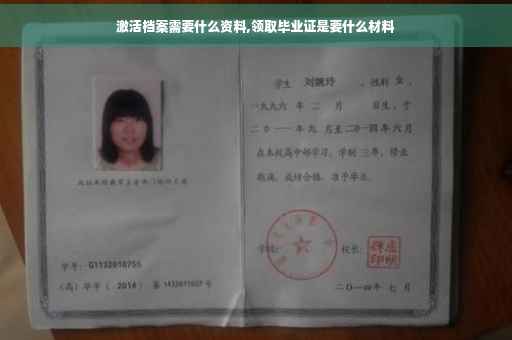 激活档案需要什么资料,领取毕业证是要什么材料
学生 刘婉玲 ，性别 女 ，
一九九六 年 二 月 日生，于
二〇一一 年 九 月至 二〇一四 年 六 月
在本校高中部学习，学制 三 年，修业
期满，成绩合格，准予毕业。
学号：G1132010755
(高) 毕字 ( 2014 ) 第 1432011607 号
学校：
校长：
二〇一四年 七 月